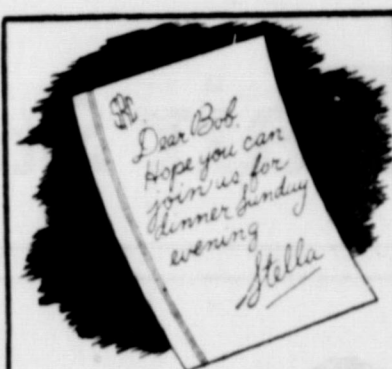 Dear Bob.
Hope you can
join us for
dinner Sunday
evening
Stella